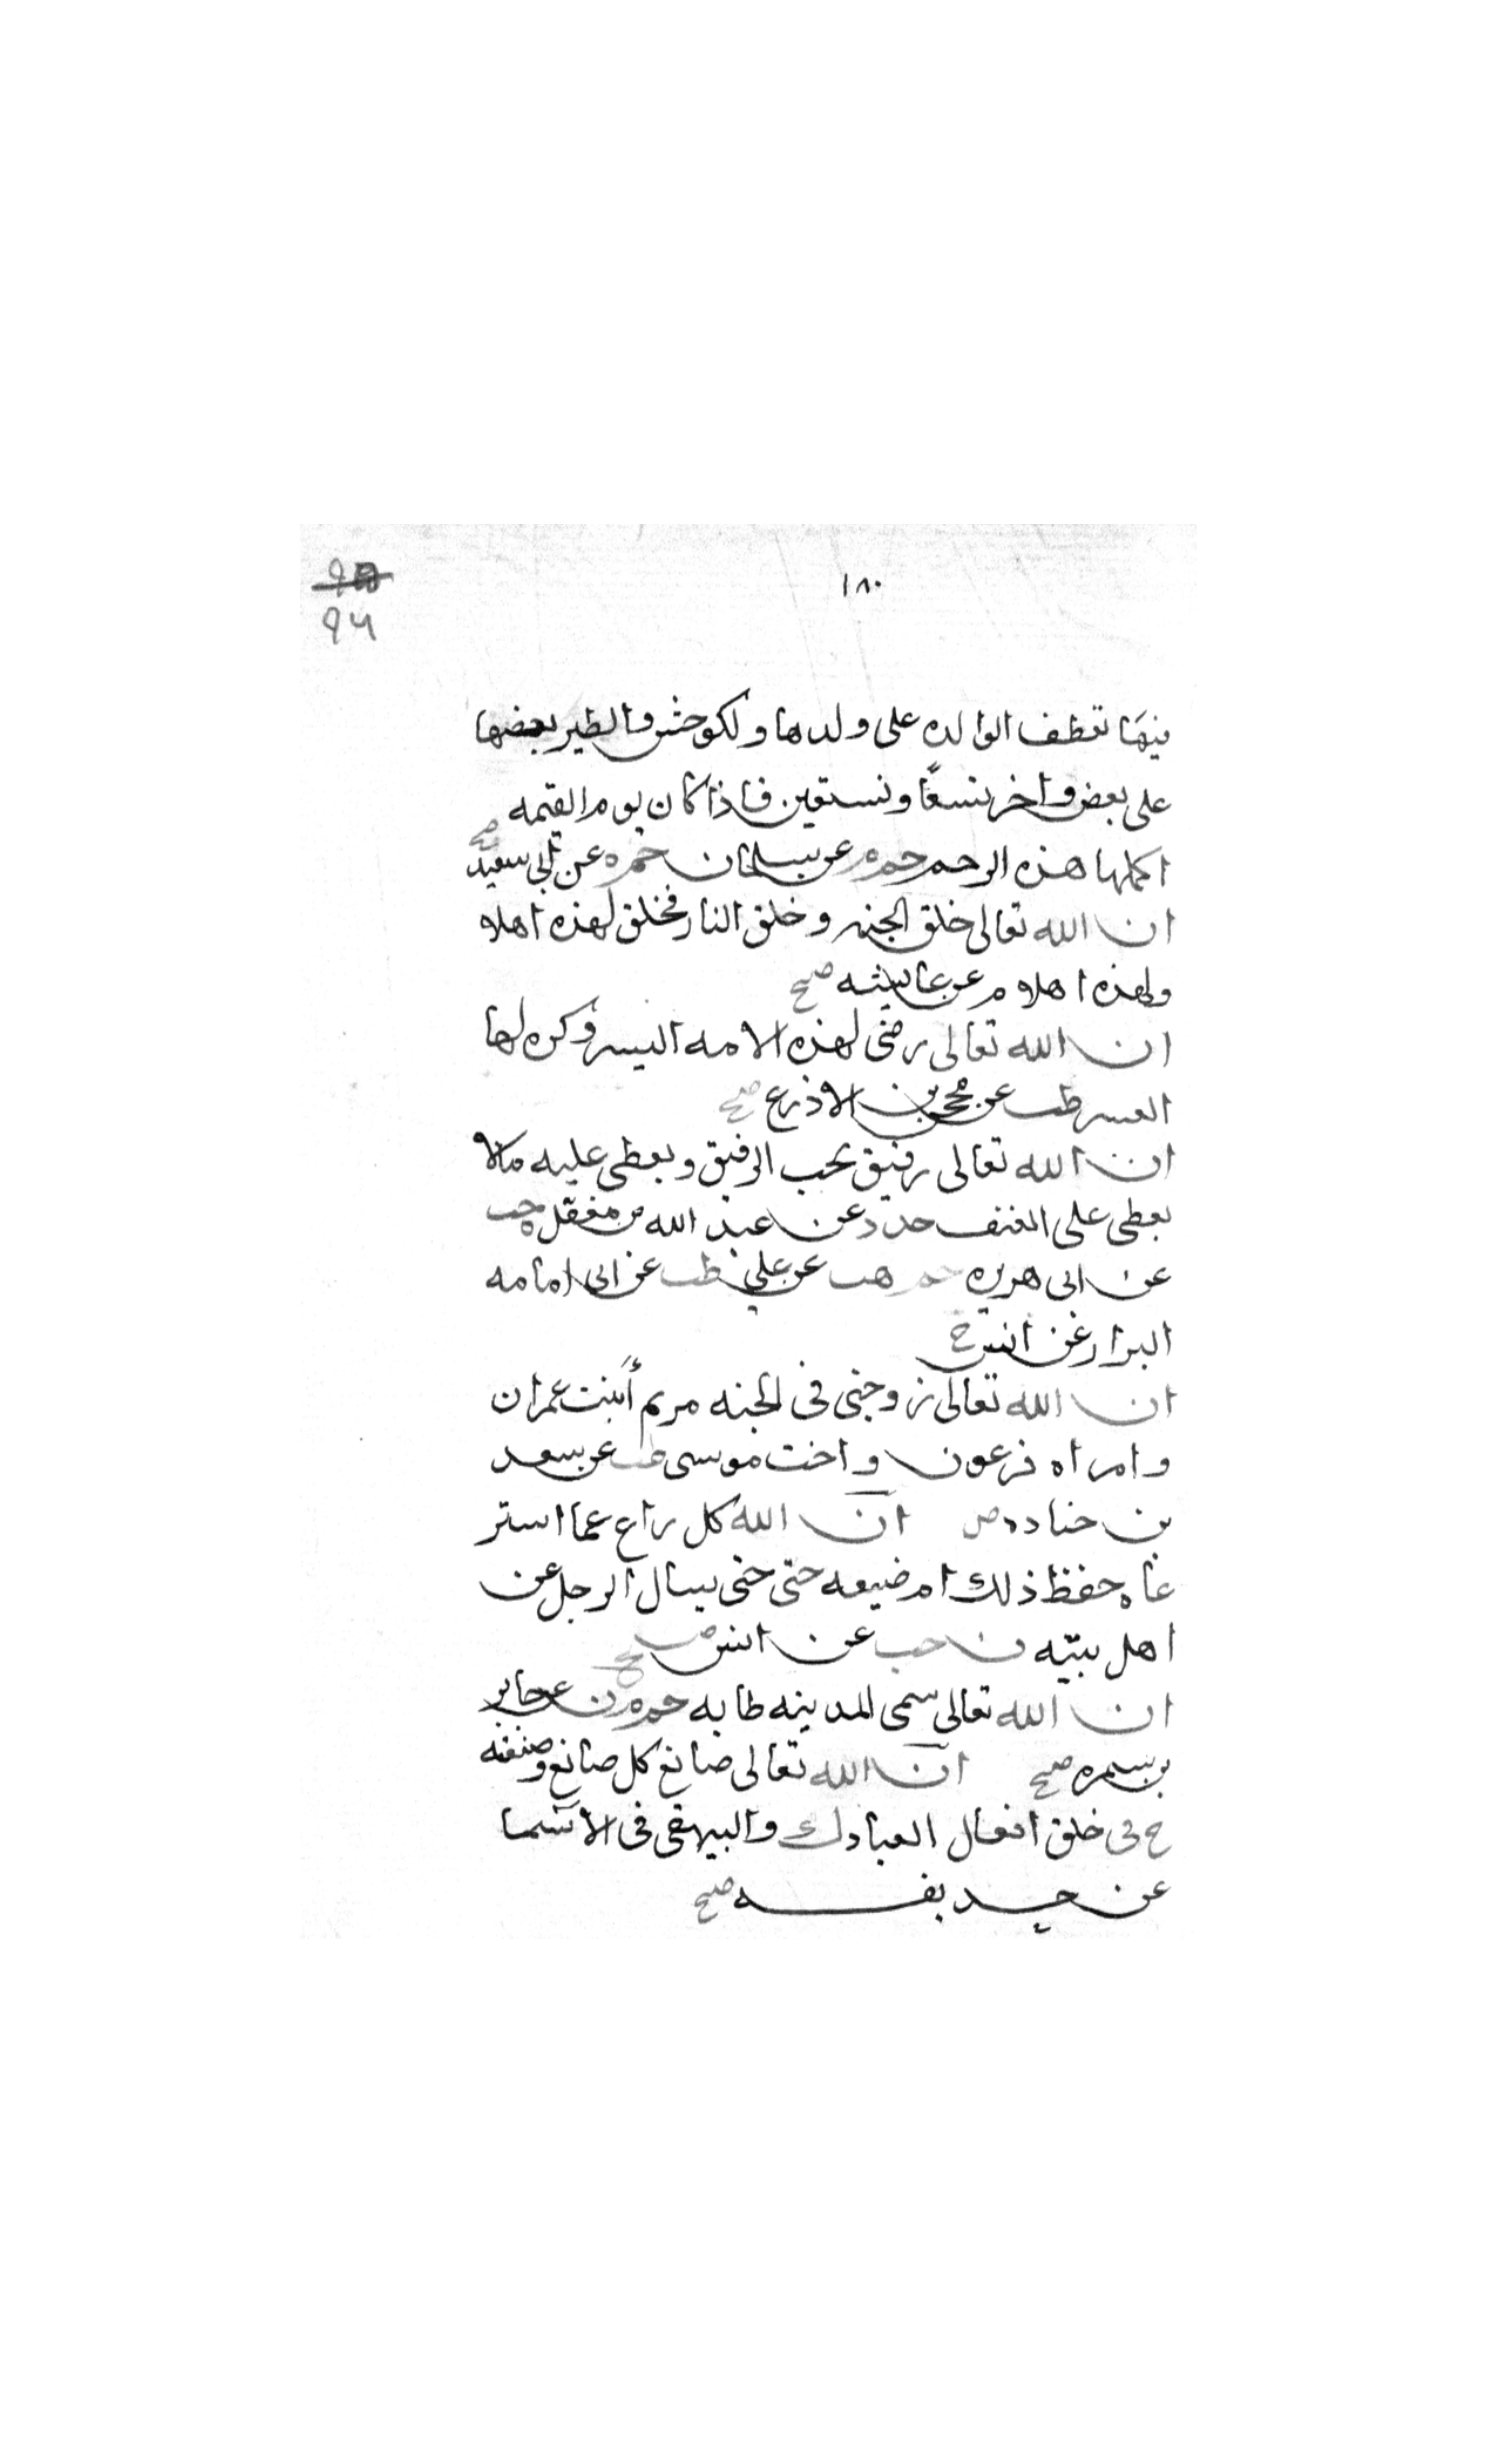 ١٨٠
94
فيها تعطف الوالده على ولدها والوحش والطير بعضها
على بعض واخر تسعًا وتسعين فاذا كان يوم القيمه
اكملها هذه الرحمه حم م عن سلمان حم ه عن ابي سعيد صح
ان الله تعالى خلق الجنه وخلق النار فخلق لهذه اهلا
ولهذه اهلا م عن عايشه صح
ان الله تعالى رضى لهذه الامه اليسر وكره لها
العسر طب عن محجن بن الاذرع صح
ان الله تعالى رفيق يحب الرفق ويعطى عليه مالا
يعطى على العنف خد د عن عبد الله بن مغفل ه حب
عن ابى هريره حم هب عن علي طب عن ابى امامه
البزار عن انس ح
ان الله تعالى زوجنى فى الجنه مريم ابنت عمران
وامراه فرعون واخت موسى طب عن سعد
بن جناده ض ان الله كل راع عما استر
عاه حفظ ذلك ام ضيعه حتى حتى يسال الرجل عن
اهل بيته ن حب عن انس صح
ان الله تعالى سمى المدينه طابه حم م ن عن جابر
بن سمره صح ان الله تعالى صانع كل صانع وصنعته
خ فى خلق افعال العباد ك والبيهقى فى الاسما
عن حذيفه صح